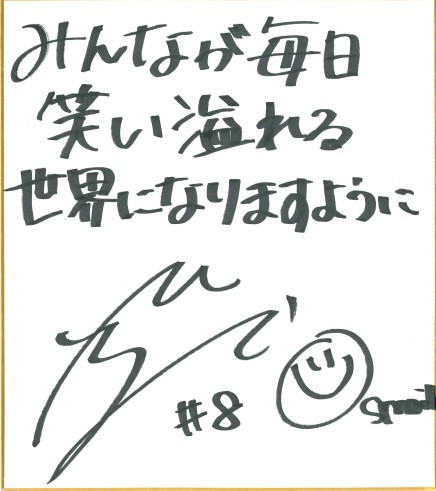 みんなが毎日
笑い溢れる
世界になりますように
#8